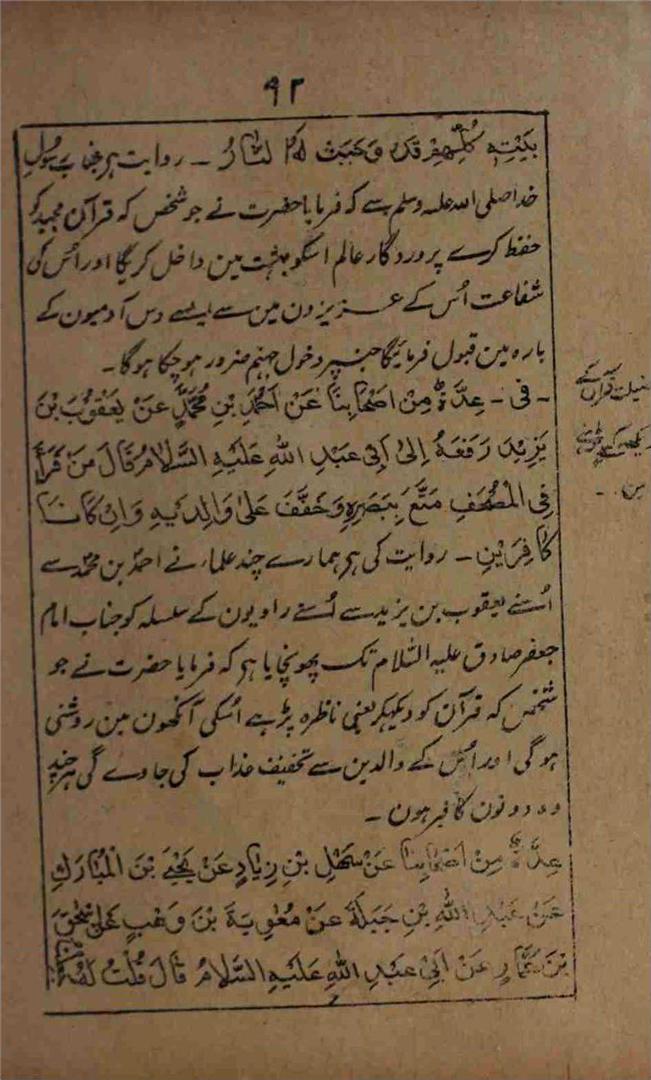 ۹۲
بَيْتِهٖ كُلُّهُمْ قَدْ وَجَبَتْ لَهُمُ النَّارُ ۔ روایت ہر جناب رسول
خدا صلی اللہ علیہ وسلم سے کہ فرمایا حضرت نے جو شخص کہ قرآن مجید کو
حفظ کرے پروردگار عالم اسکو بہشت مین داخل کریگا اور اُس کی
شفاعت اُس کے عزیزون مین سے ایسے دس آدمیون کے
بارہ مین قبول فرمائیگا جنپر دخول جہنم ضرور ہو چکا ہوگا۔
فضیلت قرآن کے
دیکھ کے پڑھنے
مین ۔
۔ فی ۔ عِدَّةٌ مِنْ اَصْحَابِنَا عَنْ اَحْمَدَ بْنِ مُحَمَّدٍ عَنْ يَعْقُوْبَ بْنِ
يَزِيْدَ رَفَعَهٗ اِلىٰ اَبِيْ عَبْدِ اللهِ عَلَيْهِ السَّلَامُ قَالَ مَنْ قَرَأَ
فِي الْمُصْحَفِ مَتَّعَ بِبَصَرِهٖ وَخَفَّفَ عَلىٰ وَالِدَيْهِ وَاِنْ كَانَا
كَافِرَيْنِ ۔ روایت کی ہر ہمارے چند علماء نے احمد بن محمد سے
اُسنے یعقوب بن یزید سے اُسنے راویون کے سلسلہ کو جناب امام
جعفر صادق علیہ السّلام تک پہونچایا ہر کہ فرمایا حضرت نے جو
شخص کہ قرآن کو دیکھکر یعنی ناظرہ پڑہے اُسکی آنکھون مین روشنی
ہوگی اور اُس کے والدین سے تخفیف عذاب کی جاوے گی ہر چند
وہ دونون کافر ہون ۔
عِدَّةٌ مِنْ اَصْحَابِنَا عَنْ سَهْلِ بْنِ زِيَادٍ عَنْ يَحْيٰى بْنِ الْمُبَارَكِ
عَنْ عَبْدِ اللهِ بْنِ جَبَلَةَ عَنْ مُعٰوِيَةَ بْنِ وَهْبٍ عَنْ اِسْحٰقَ
بْنِ عَمَّارٍ عَنْ اَبِيْ عَبْدِ اللهِ عَلَيْهِ السَّلَامُ قَالَ قُلْتُ لَهٗ